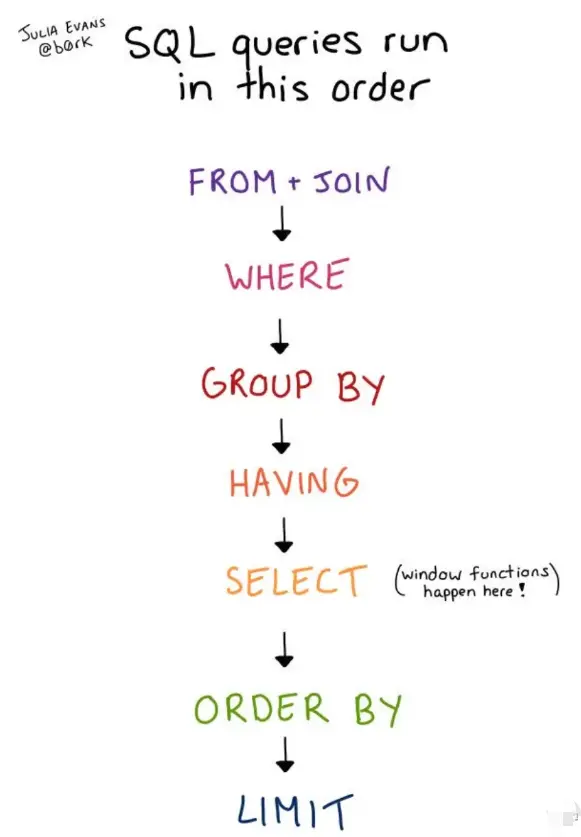 JULIA EVANS
@børk
SQL queries run
in this order
FROM + JOIN
WHERE
GROUP BY
HAVING
SELECT (window functions
happen here!)
ORDER BY
LIMIT